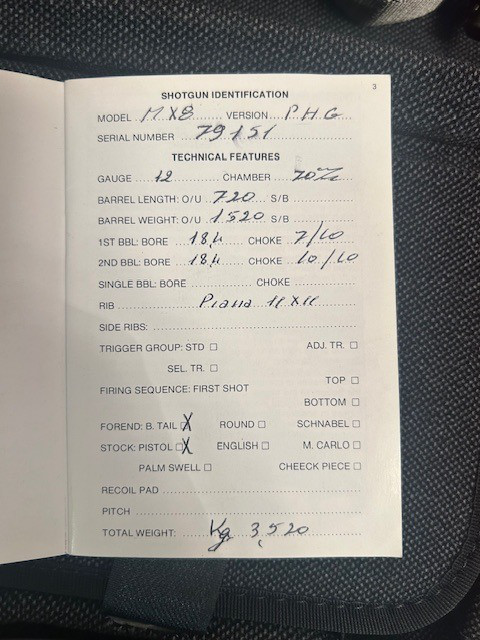 3
SHOTGUN IDENTIFICATION
MODEL MX8 VERSION P H G
SERIAL NUMBER 79151
TECHNICAL FEATURES
GAUGE 12 CHAMBER 70
BARREL LENGTH: O/U 720 S/B
BARREL WEIGHT: O/U 1520 S/B
1ST BBL: BORE 18,4 CHOKE 7/10
2ND BBL: BORE 18,4 CHOKE 10/10
SINGLE BBL: BORE CHOKE
RIB Piana 11X11
SIDE RIBS:
TRIGGER GROUP: STD ☐ ADJ. TR. ☐
SEL. TR. ☐
TOP ☐
FIRING SEQUENCE: FIRST SHOT
BOTTOM ☐
FOREND: B. TAIL ☐ X ROUND ☐ SCHNABEL ☐
STOCK: PISTOL ☐ X ENGLISH ☐ M. CARLO ☐
PALM SWELL ☐ CHEECK PIECE ☐
RECOIL PAD
PITCH
TOTAL WEIGHT: Kg 3,520